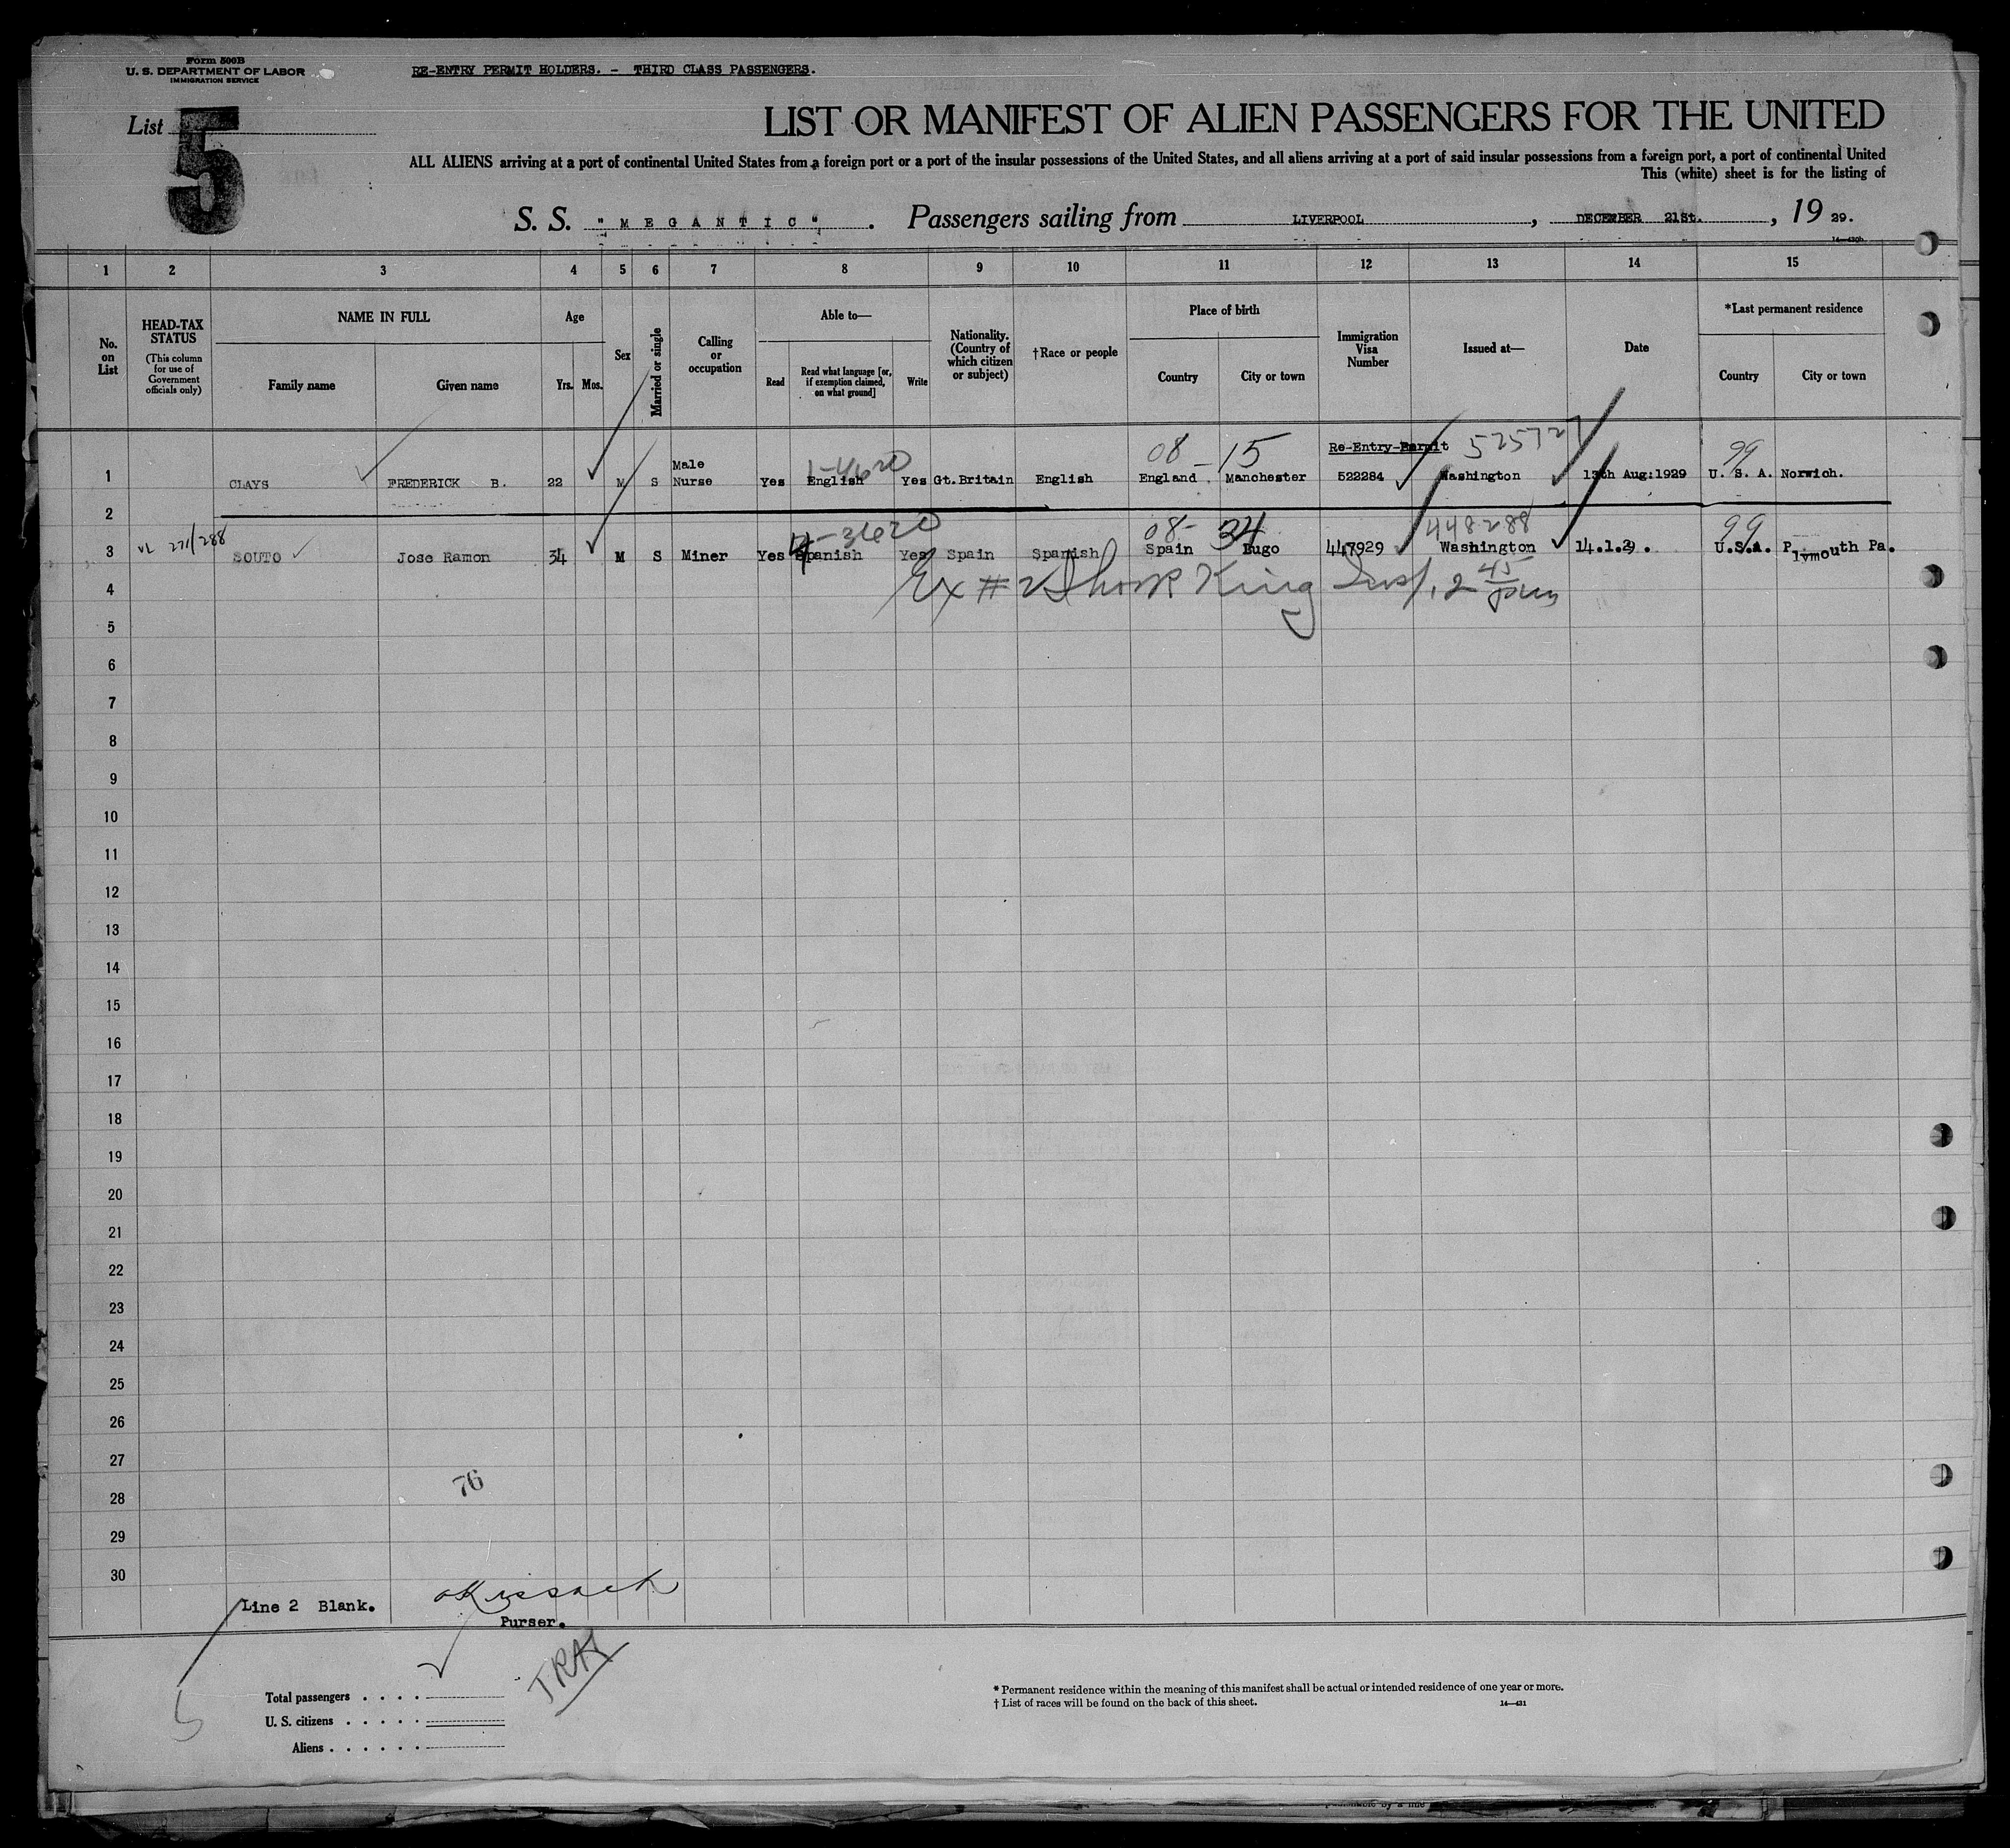 Form 500B
U. S. DEPARTMENT OF LABOR
IMMIGRATION SERVICE
RE-ENTRY PERMIT HOLDERS. - THIRD CLASS PASSENGERS.
List 5
LIST OR MANIFEST OF ALIEN PASSENGERS FOR THE UNITED
ALL ALIENS arriving at a port of continental United States from a foreign port or a port of the insular possessions of the United States, and all aliens arriving at a port of said insular possessions from a foreign port, a port of continental United
This (white) sheet is for the listing of
S. S. "MEGANTIC". Passengers sailing from LIVERPOOL, DECEMBER 21St., 19 29.
14—430b
1 2 3 4 5 6 7 8 9 10 11 12 13 14 15
No. on List
HEAD-TAX STATUS (This column for use of Government officials only)
NAME IN FULL
Family name Given name
Age
Yrs. Mos.
Sex
Married or single
Calling or occupation
Able to—
Read Read what language [or, if exemption claimed, on what ground] Write
Nationality. (Country of which citizen or subject)
†Race or people
Place of birth
Country City or town
Immigration Visa Number
Issued at—
Date
*Last permanent residence
Country City or town
Re-Entry-Permit 525727
08-15 99
1-4620
1 CLAYS FREDERICK B. 22 M S Male Nurse Yes English Yes Gt.Britain English England Manchester 522284 Washington 13th Aug:1929 U. S. A. Norwich.
2
08-34 448288 99
-3620
271/288
3 SOUTO Jose Ramon 34 M S Miner Yes Spanish Yes Spain Spanish Spain Lugo 447929 Washington 14.1.29. U.S.A. Plymouth Pa.
4 Ex # 2 King Insp. 2 45
5
6
7
8
9
10
11
12
13
14
15
16
17
18
19
20
21
22
23
24
25
26
27
76
28
29
30
Line 2 Blank.
Purser.
Total passengers
U. S. citizens
Aliens
* Permanent residence within the meaning of this manifest shall be actual or intended residence of one year or more.
† List of races will be found on the back of this sheet. 14—431